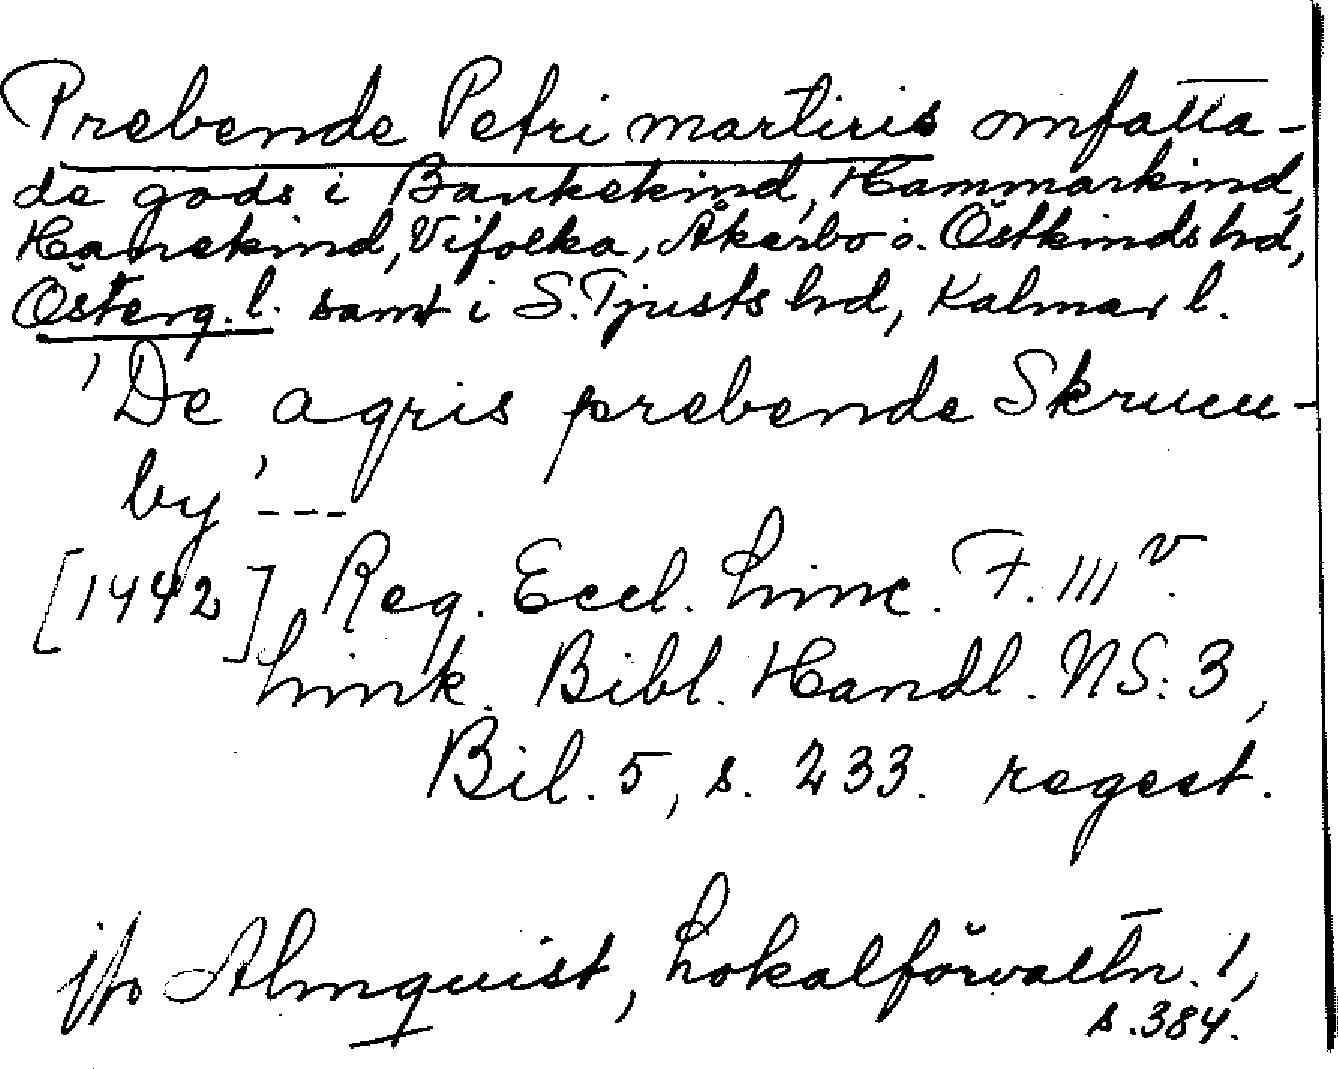 Prebende Petri martiris omfatta-
de gods i Bankekind, Hammarkind,
Hanekind, Vifolka, Åkerbo o. Östkinds hd,
Österg. l. samt i S. Tjusts hd, Kalmar l.
'De agris prebende Skrucu-
by' ---
[1442] Reg. Eccl. Linc. F. III v.
Link. Bibl. Handl. NS: 3,
Bil. 5, s. 233. regest.
jfr Almquist, Lokalförvaltn. 1,
s. 384.